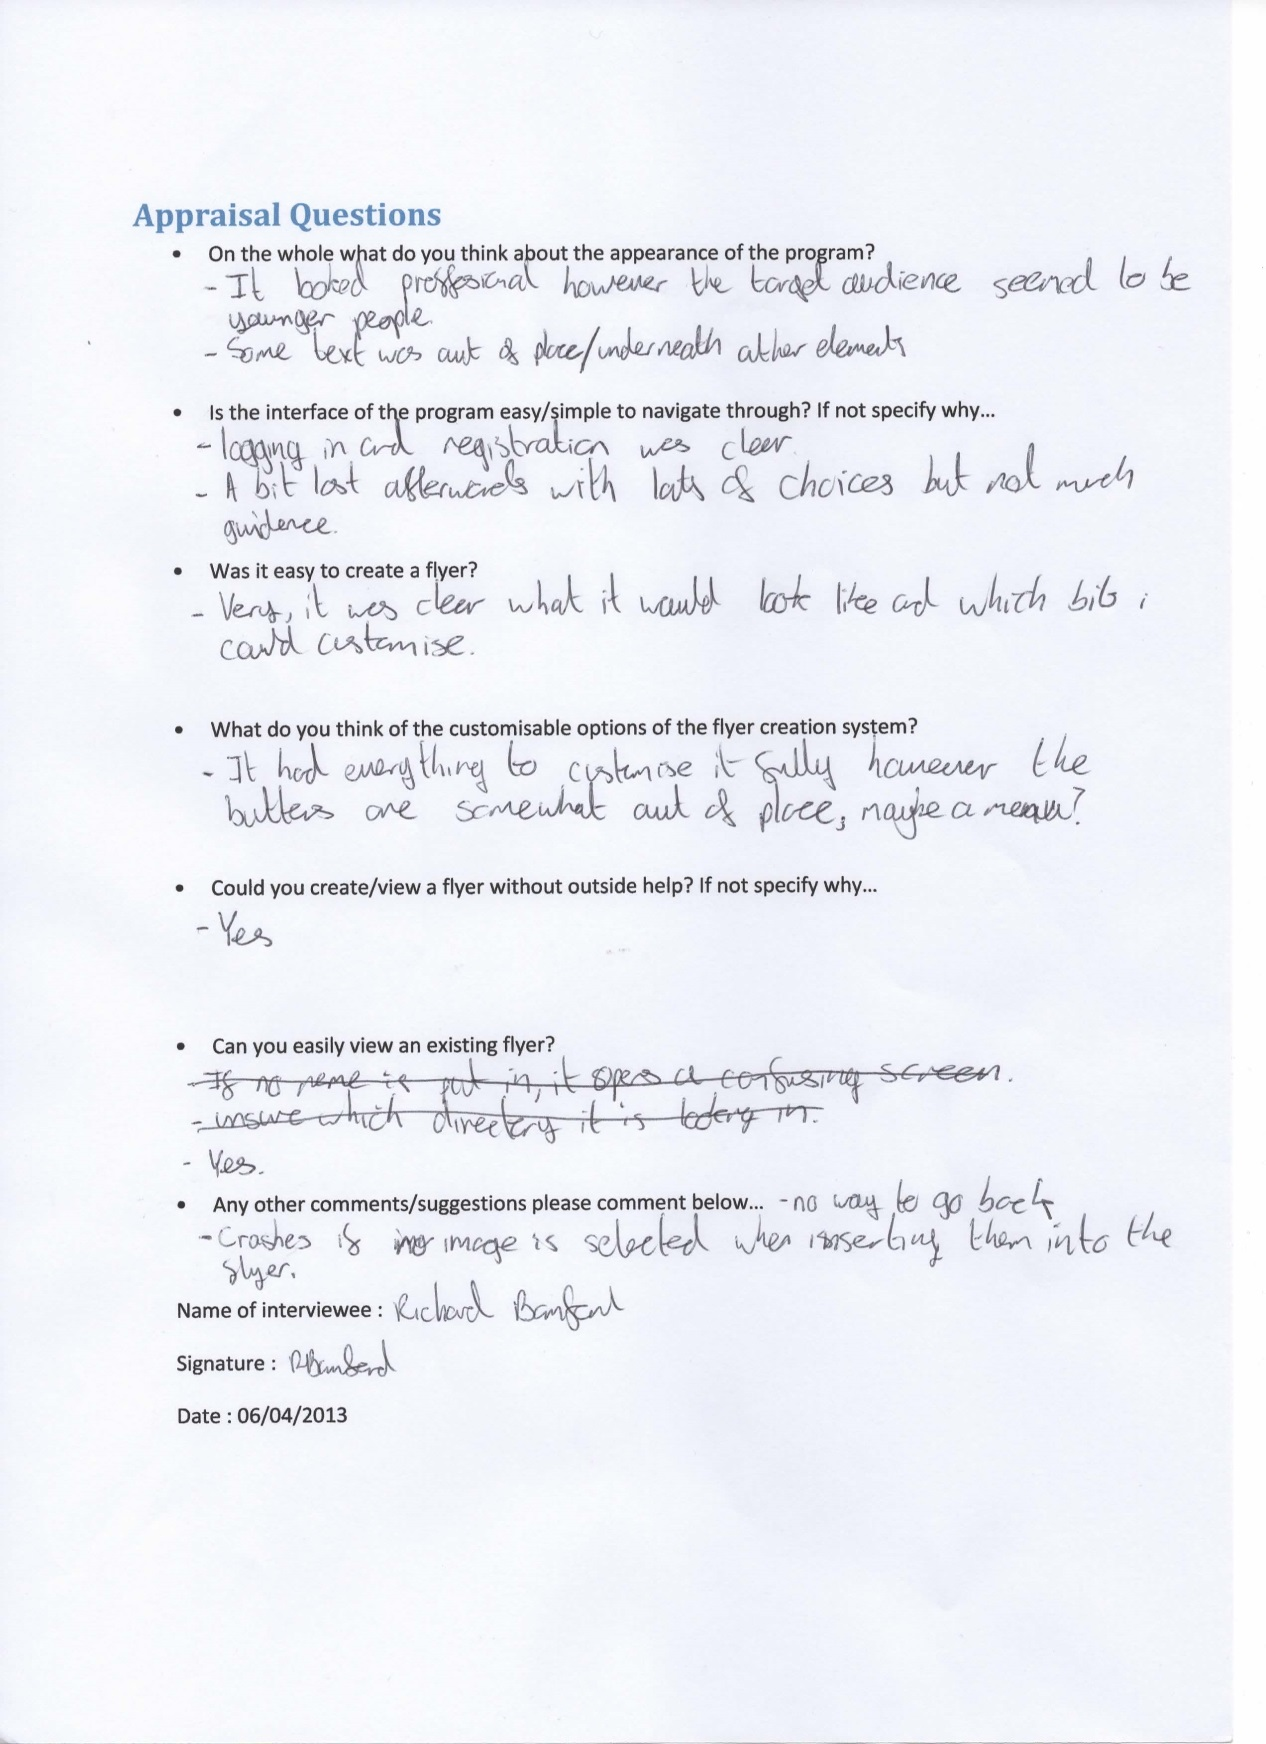 Appraisal Questions
• On the whole what do you think about the appearance of the program?
- It looked proffesional however the target audience seemed to be
younger people.
- Some text was out of place/underneath other elements
• Is the interface of the program easy/simple to navigate through? If not specify why...
- logging in and registration was clear.
- A bit lost afterwards with lots of choices but not much
guidence.
• Was it easy to create a flyer?
- Very, it was clear what it would look like and which bits i
could customise.
• What do you think of the customisable options of the flyer creation system?
- It had everything to customise it fully however the
buttons are somewhat out of place, maybe a menu?
• Could you create/view a flyer without outside help? If not specify why...
- Yes
• Can you easily view an existing flyer?
- If no name is put in, it opens a confusing screen.
- unsure which directory it is looking in.
- Yes.
• Any other comments/suggestions please comment below... - no way to go back
- Crashes if no image is selected when inserting them into the
flyer.
Name of interviewee : Richard Bamford
Signature : RBamford
Date : 06/04/2013